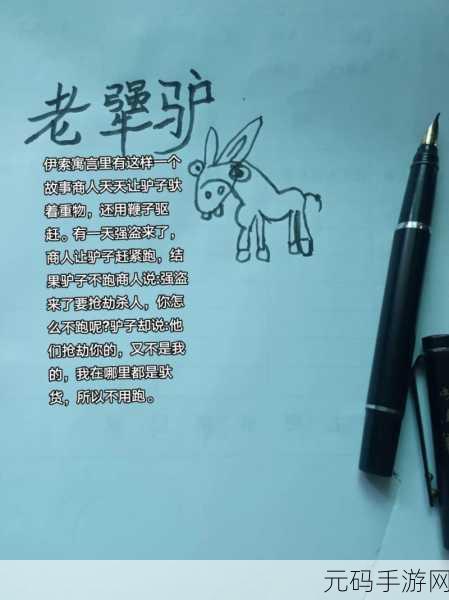 老犟驴
伊索寓言里有这样一个
故事商人天天让驴子驮
着重物，还用鞭子驱
赶。有一天强盗来了，
商人让驴子赶紧跑，结
果驴子不跑商人说:强盗
来了要抢劫杀人，你怎
么不跑呢?驴子却说:他
们抢劫你的，又不是我
的，我在哪里都是驮
货，所以不用跑。
元码手游网